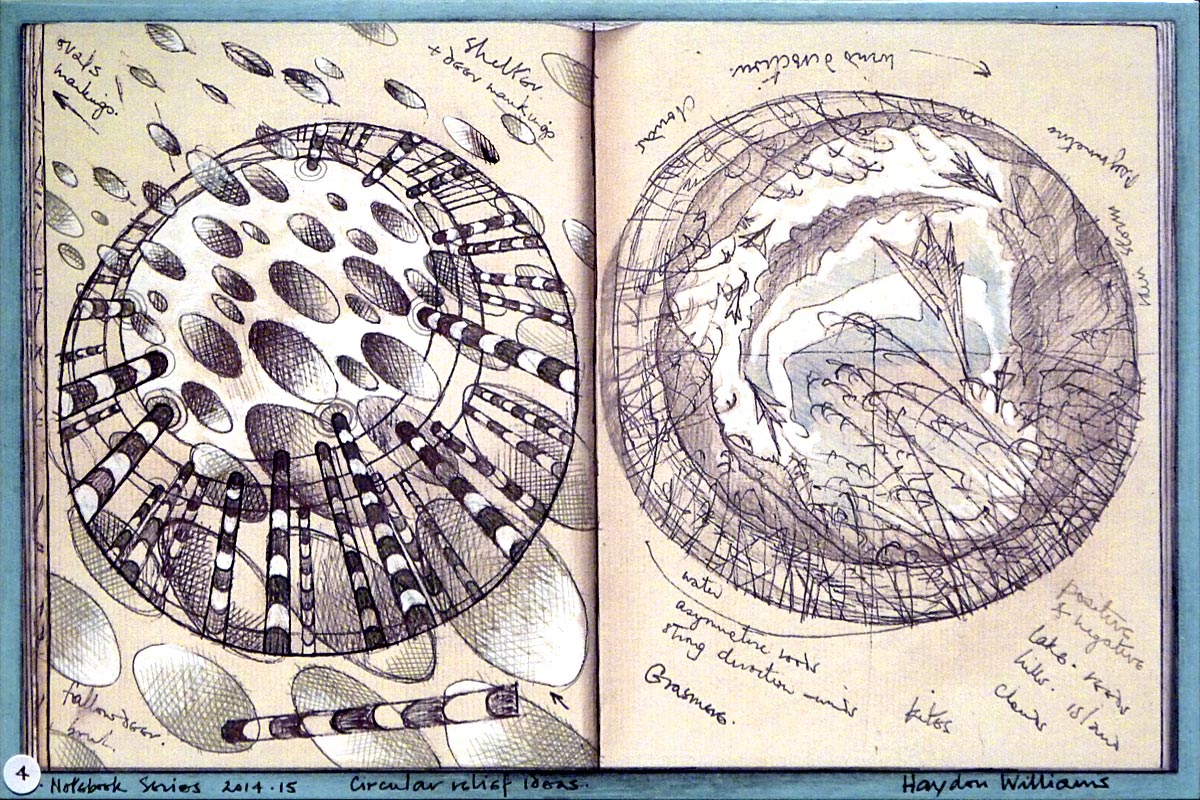 ovals
markings.
shelter
+ deer markings
fallow deer.
bowl.
wind direction.
clouds
in storm
water
asymmetric reeds
strong direction – winds
Grasmere.
kites
positive
& negative
lake. reeds
hills. island
clouds
4
Notebook Series 2014.15 Circular relief ideas. Haydon Williams